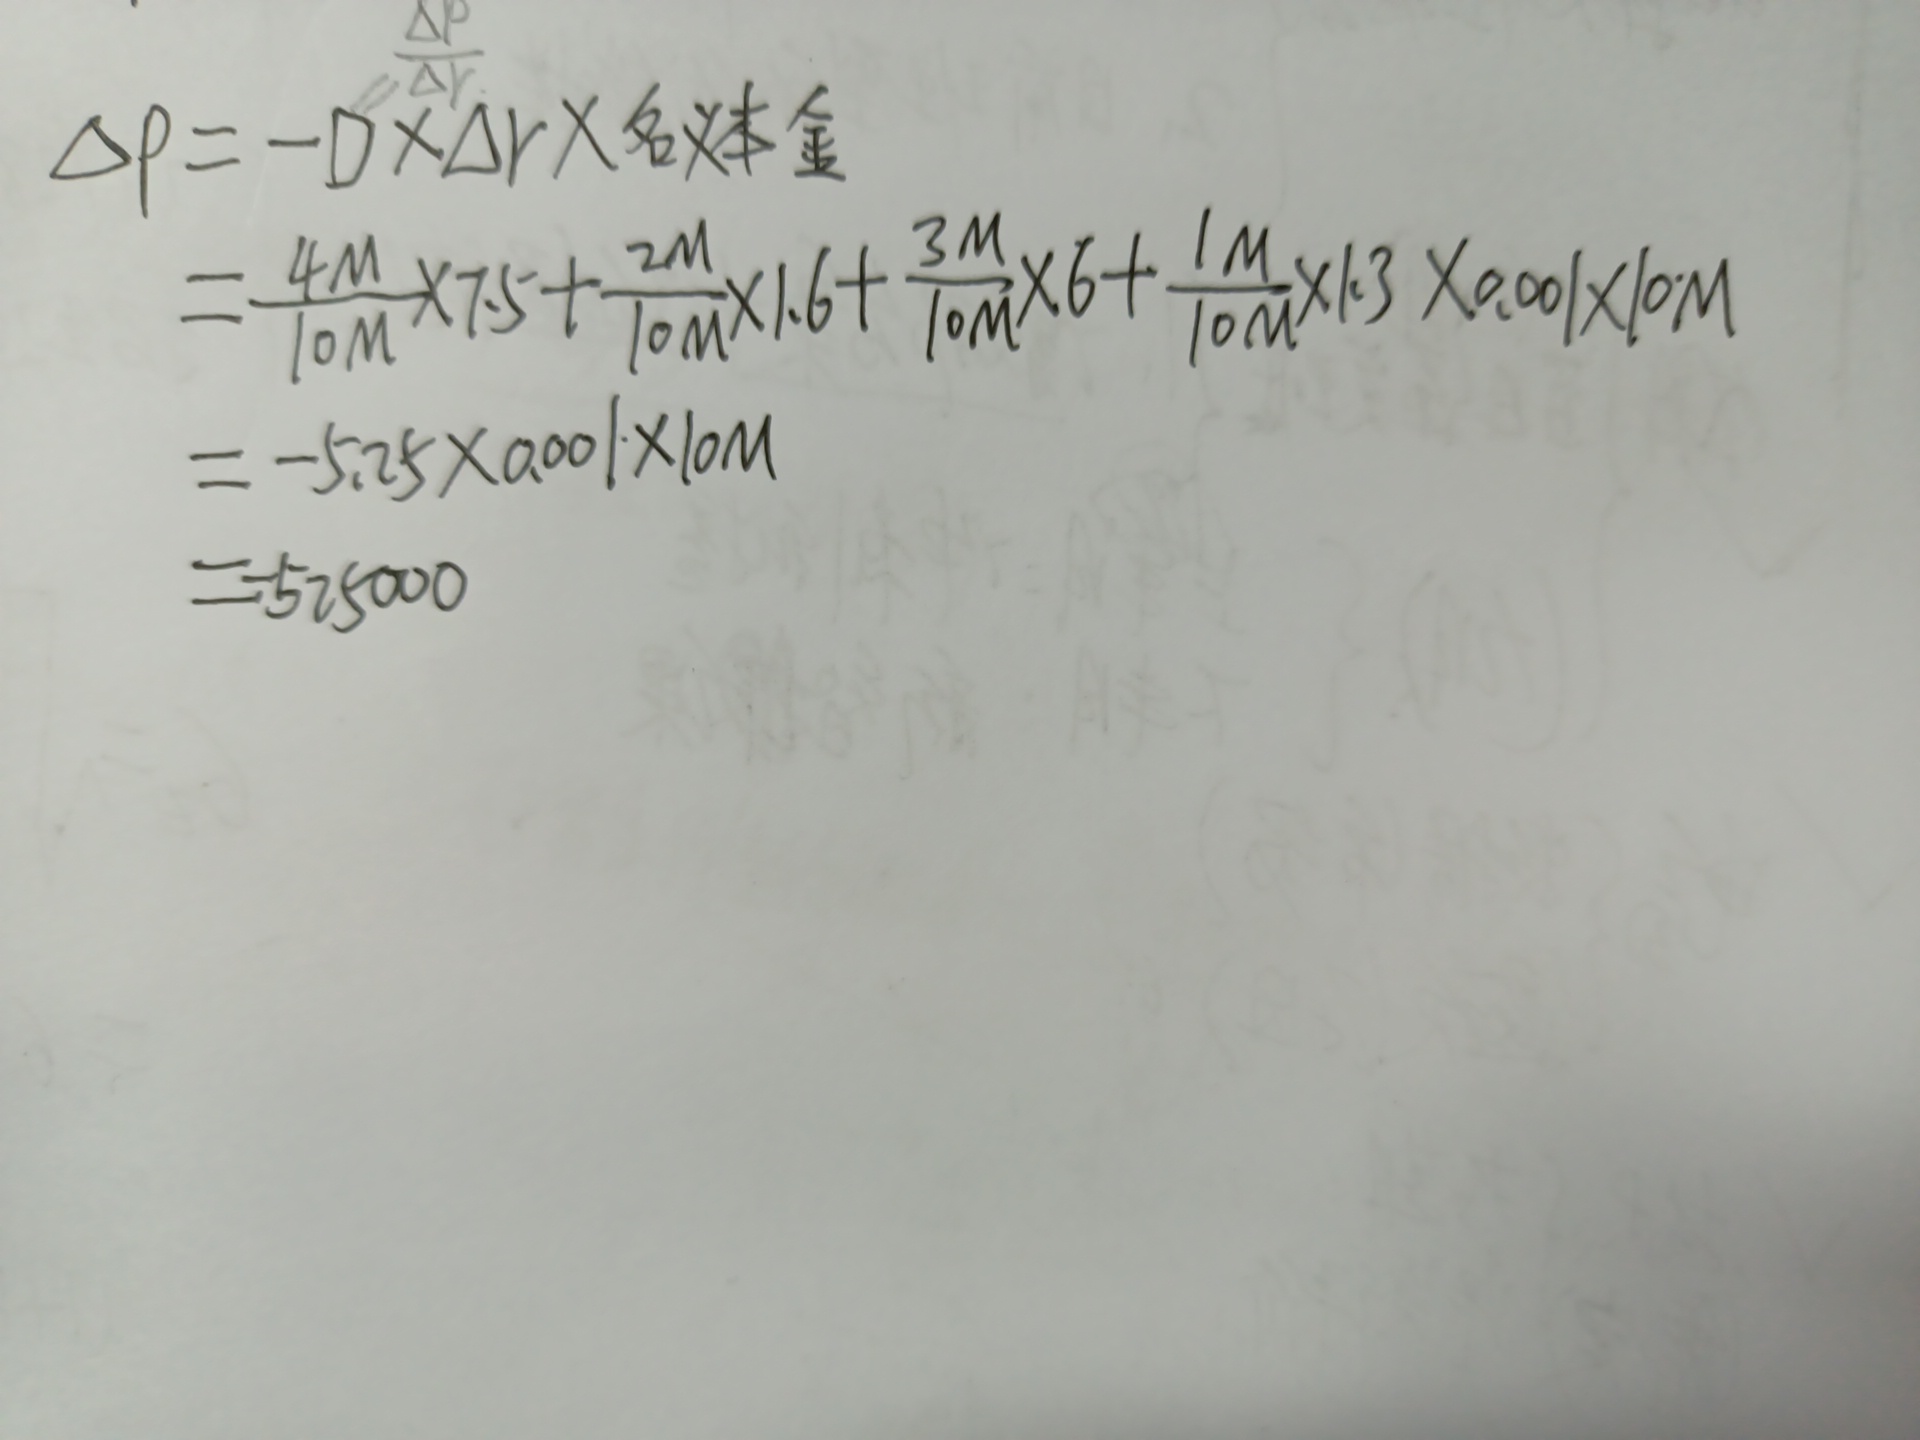 ΔP
Δr
ΔP = -D×Δr×名义本金
= 4M/10M ×7.5+ 2M/10M ×1.6+ 3M/10M ×6+ 1M/10M ×1.3 ×0.001×10M
= -5.25×0.001×10M
=-525000